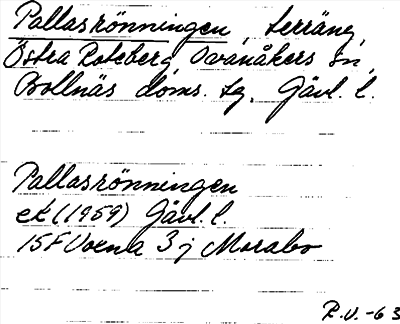 Pallasrönningen, terräng,
Östra Roteberg, Ovanåkers sn,
Bollnäs doms. tg, Gävl. l.
Pallasrönningen
ek (1959) Gävl. l.
15F Voxna 3 j Morabo
P.V.-63